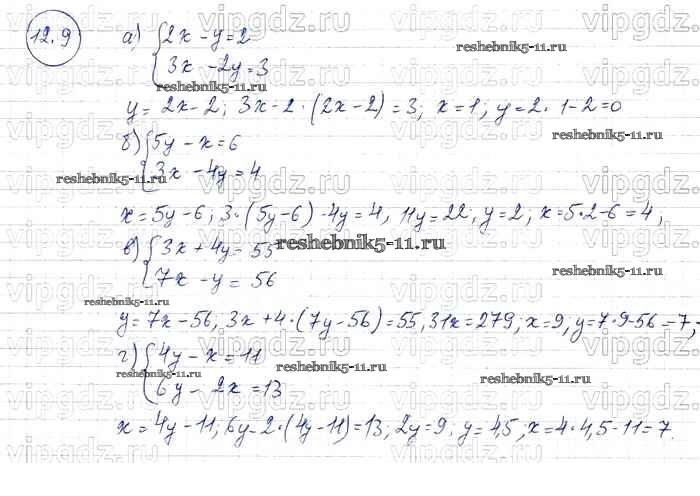 12.9
а) { 2x - y = 2
3x - 2y = 3
y = 2x - 2; 3x - 2·(2x - 2) = 3; x = 1; y = 2·1 - 2 = 0
б) { 5y - x = 6
3x - 4y = 4
x = 5y - 6; 3·(5y - 6) - 4y = 4, 11y = 22, y = 2, x = 5·2 - 6 = 4;
в) { 3x + 4y = 55
7x - y = 56
y = 7x - 56, 3x + 4·(7y - 56) = 55, 31x = 279; x = 9, y = 7·9 - 56 = 7,
г) { 4y - x = 11
6y - 2x = 13
x = 4y - 11; 6y - 2·(4y - 11) = 13; 2y = 9, y = 4,5; x = 4·4,5 - 11 = 7.
vipgdz.ru
reshebnik5-11.ru